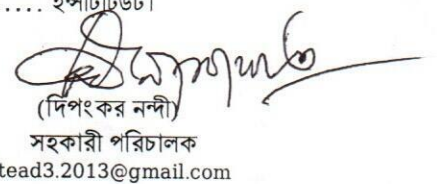 .... ইন্সটিটিউট।
(দিপংকর নন্দী)
সহকারী পরিচালক
tead3.2013@gmail.com